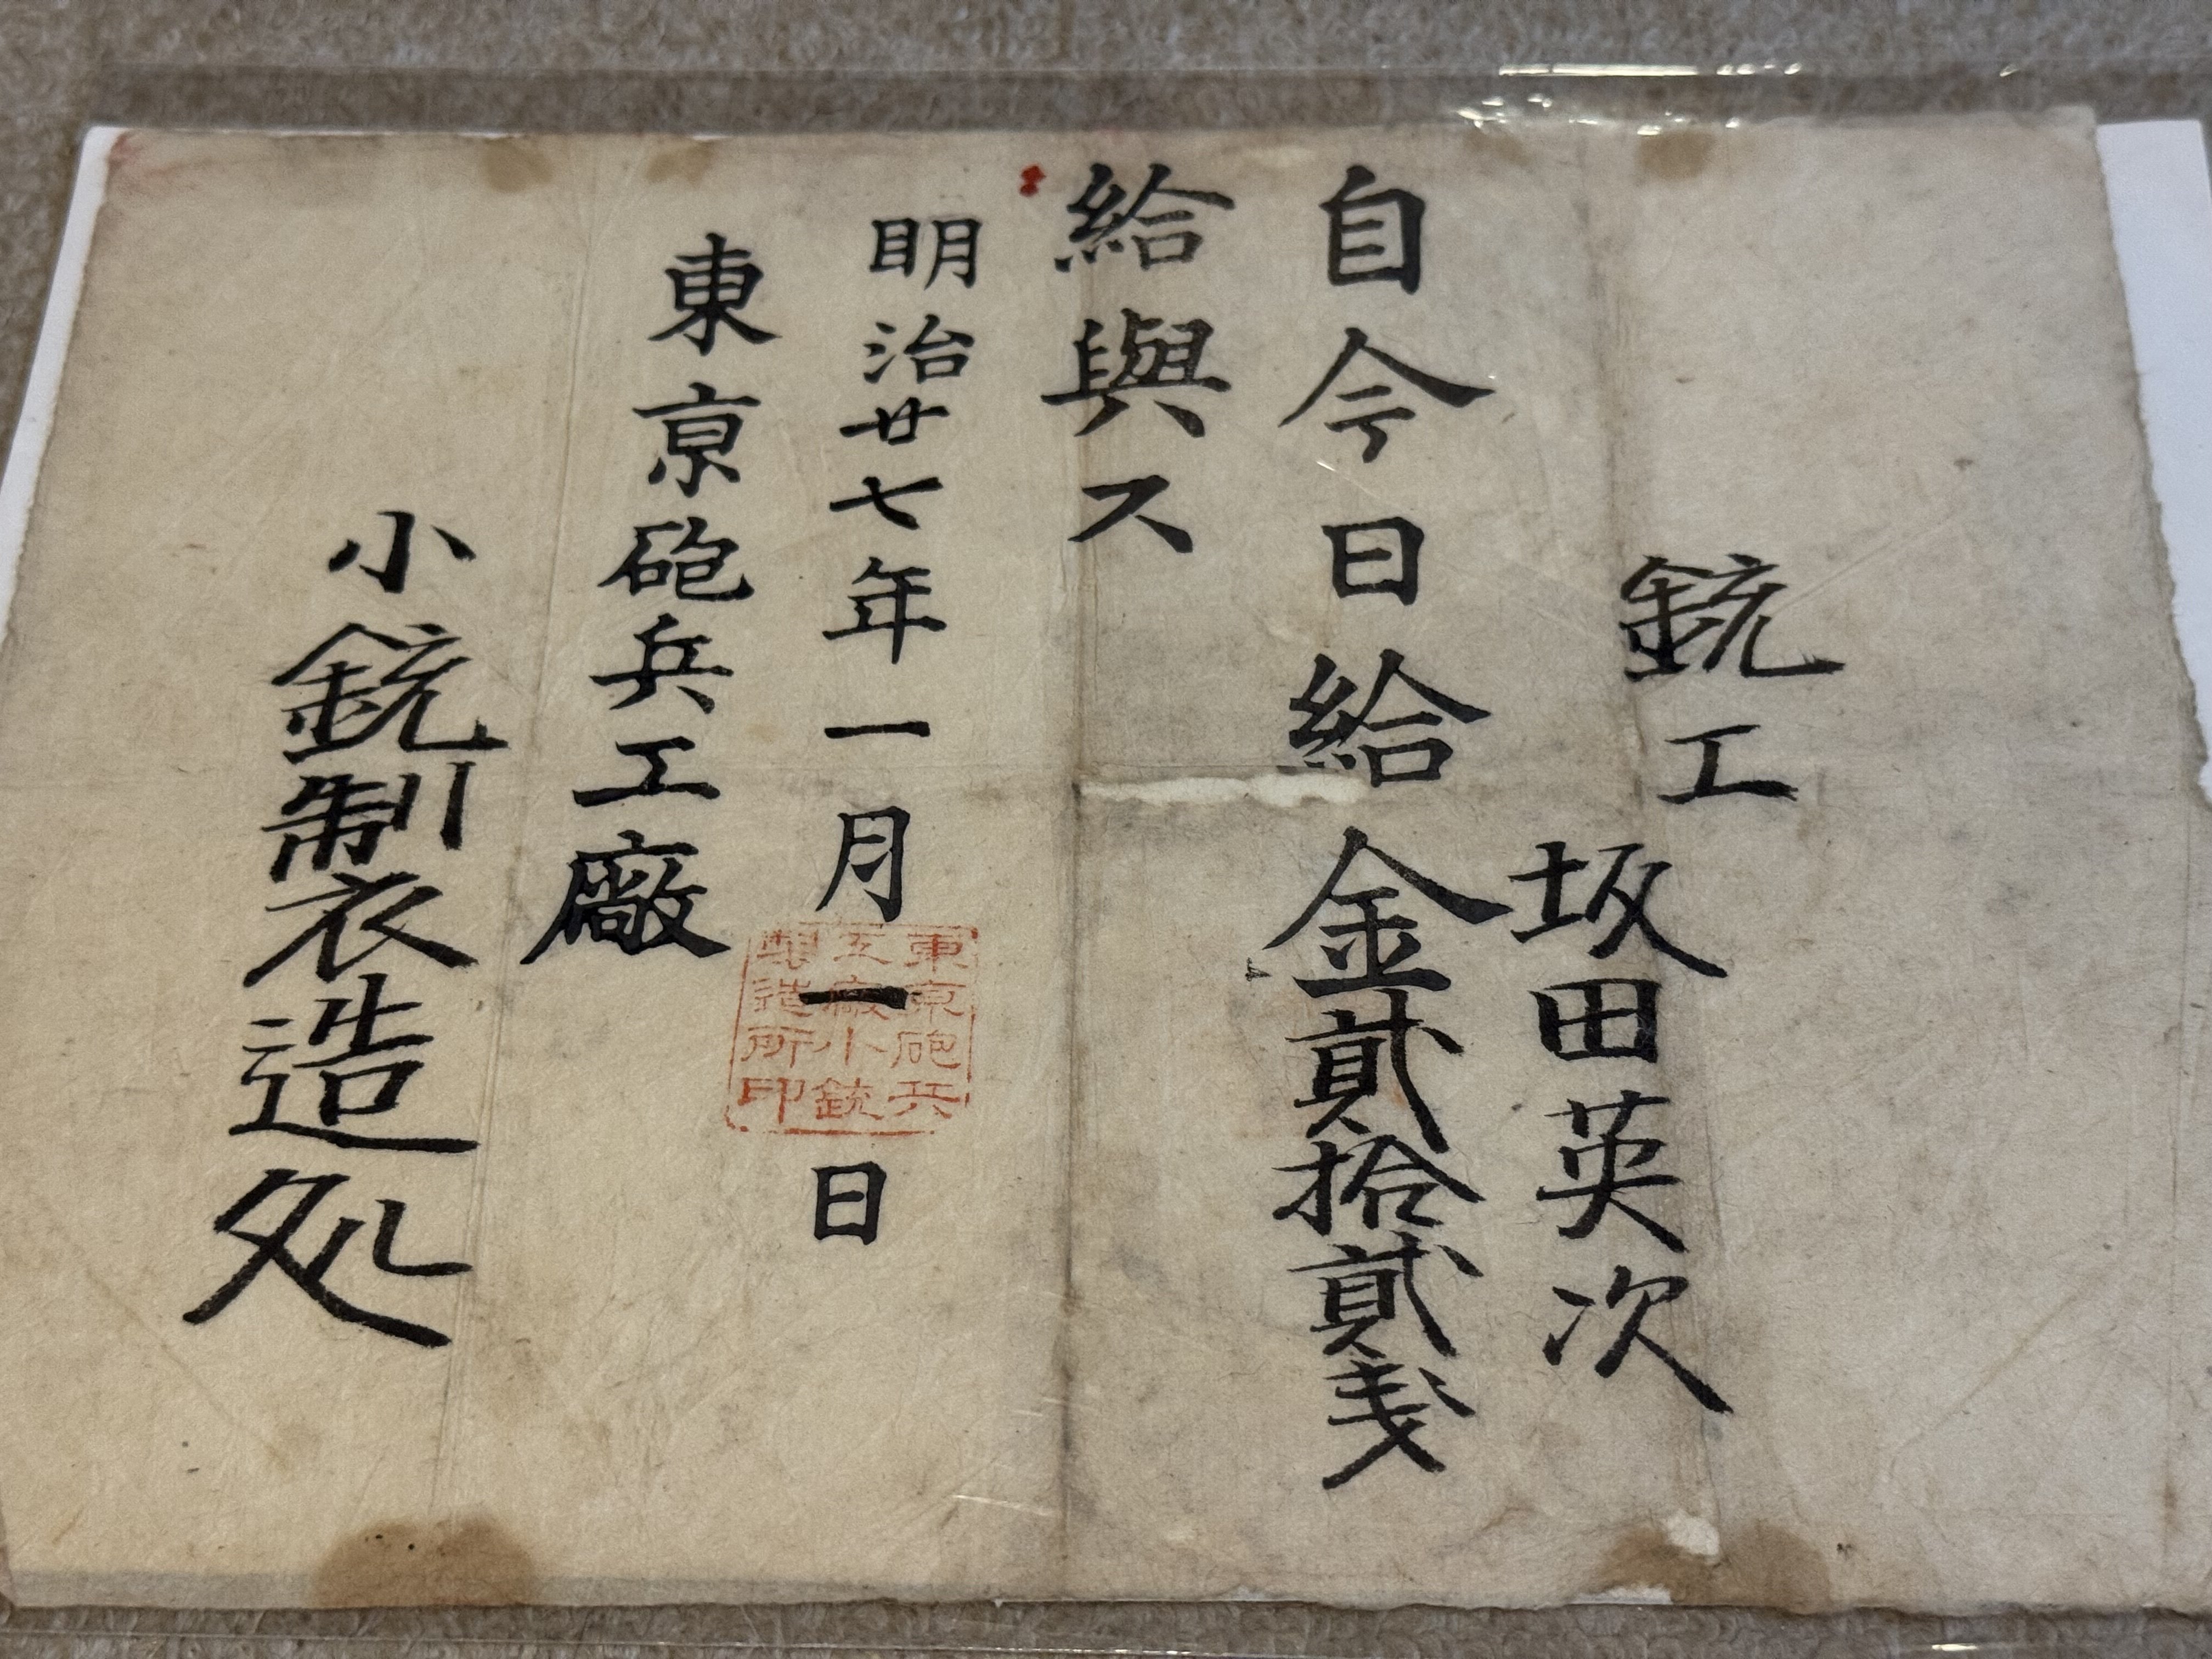 銃工
坂田英次
自今日給金貳拾貳戔
給與ス
明治廿七年一月一日
東京砲兵工廠
小銃製造処
東京砲兵
工廠小銃
製造所印